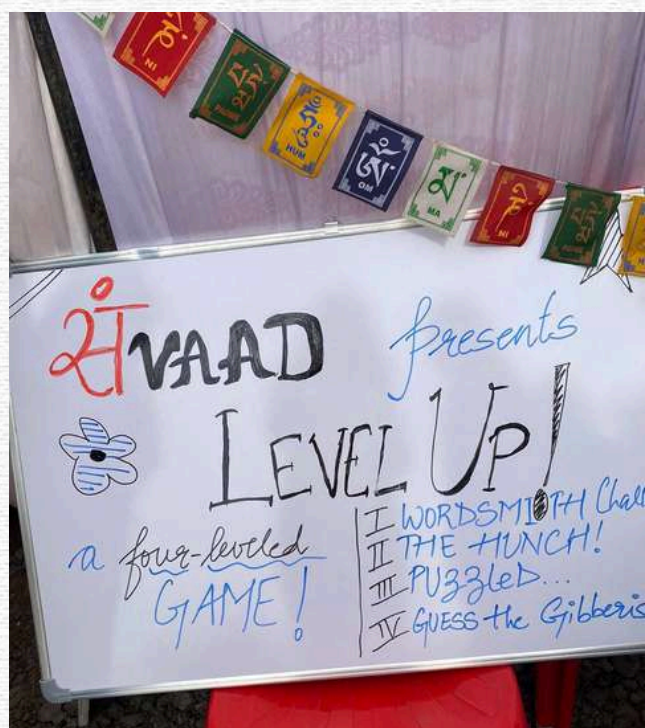 NI
HUM
OM
MA
NI
संVAAD presents
LEVEL UP!
a four-leveled
GAME!
I WORDSMITH Chall
II THE HUNCH!
III PUZZLED...
IV GUESS the Gibberis